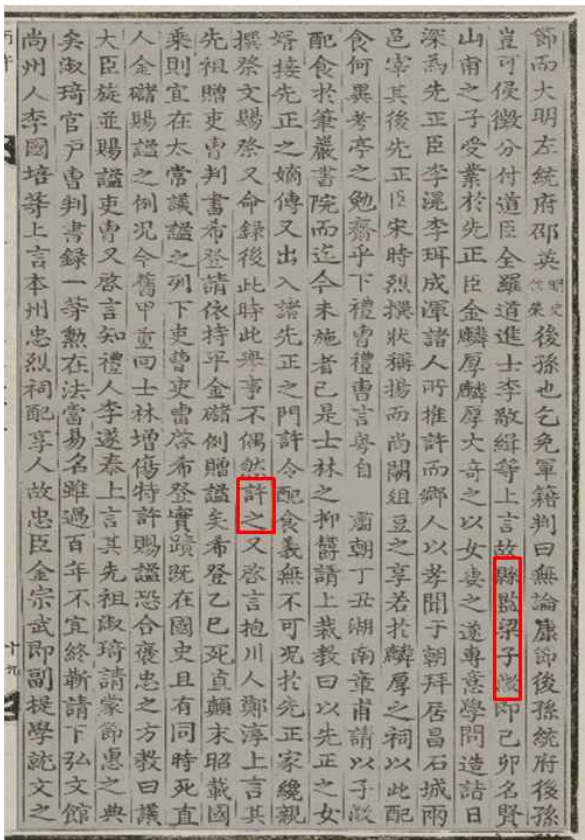 節而大明左統府邵英明史作榮後孫也乞免軍籍判曰無論康節後孫統府後孫
豈可侵徵分付道臣全羅道進士李敬緝等上言故縣監梁子澂卽己卯名賢
山甫之子受業於先正臣金麟厚麟厚大奇之以女妻之遂專意學問造詣日
深爲先正臣李滉李珥成渾諸人所推許而鄕人以孝聞于朝拜居昌石城兩
邑宰其後先正臣宋時烈撰狀稱揚而尙闕俎豆之享若於麟厚之祠以此配
食何異考亭之勉齋乎下禮曹禮曹言粤自 肅朝丁丑湖南章甫請以子澂
配食於筆巖書院而迄今未施者已是士林之抑鬱請上裁敎曰以先正之女
壻接先正之嫡傳又出入諸先正之門許令配食義無不可况於先正家纔親
撰祭文賜祭又命錄後此時此擧事不偶然許之又啓言抱川人鄭涬上言其
先祖贈吏曹判書希登請依持平金䃴例贈諡矣希登乙巳死直顚末昭載國
乘則宜在太常議諡之列下吏曹吏曹啓希登實蹟旣在國史且有同時死直
人金䃴賜諡之例况今舊甲重回士林增傷特許賜諡恐合褒忠之方敎曰議
大臣施並賜諡吏曹又啓言知禮人李遂泰上言其先祖淑琦請蒙節惠之典
矣淑琦官戶曹判書錄一等勳在法當易名雖過百年不宜終靳請下弘文館
尙州人李國培等上言本州忠烈祠配享人故忠臣金宗武卽副提學就文之